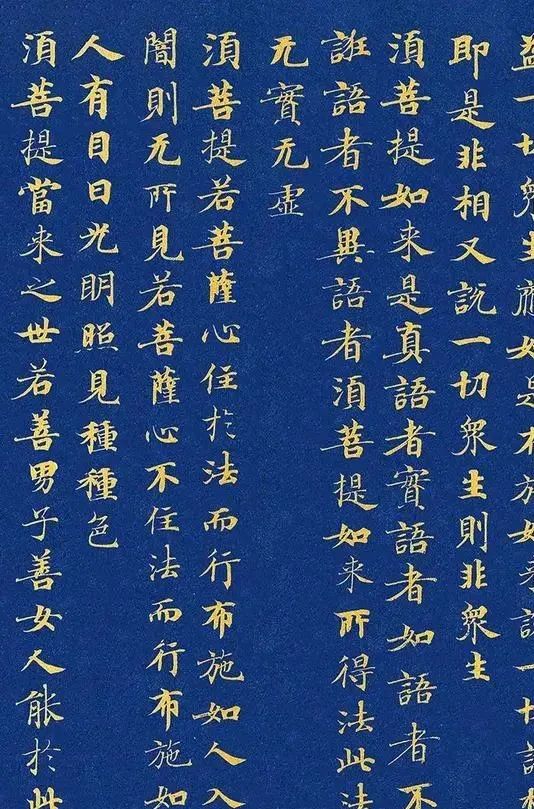 益一切衆生應如是布施如来説一切諸
即是非相又説一切衆生則非衆生
須菩提如来是真語者實語者如語者不
誑語者不異語者須菩提如来所得法此法
无實无虛
須菩提若菩薩心住於法而行布施如人入
闇則无所見若菩薩心不住法而行布施如
人有目日光明照見種種色
須菩提當来之世若善男子善女人能於此